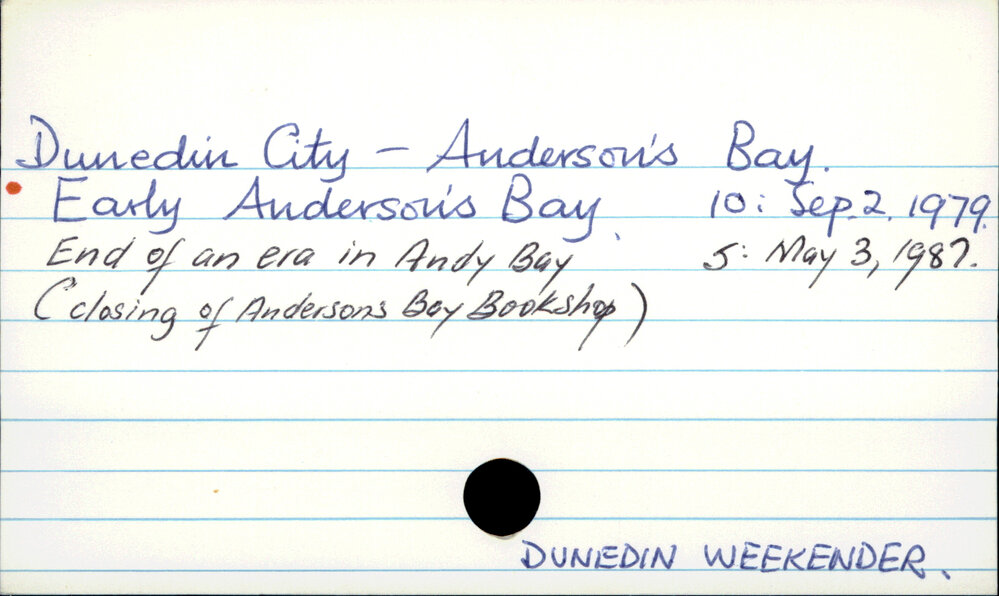 Dunedin City - Anderson's Bay.
Early Anderson's Bay. 10: Sep. 2. 1979.
End of an era in Andy Bay 5: May 3, 1987.
(closing of Andersons Bay Bookshop)
DUNEDIN WEEKENDER.